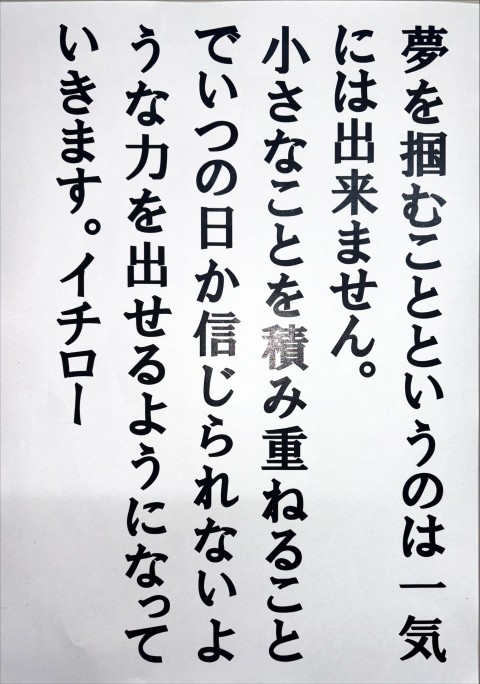 夢を掴むことというのは一気
には出来ません。
小さなことを積み重ねること
でいつの日か信じられないよ
うな力を出せるようになって
いきます。イチロー